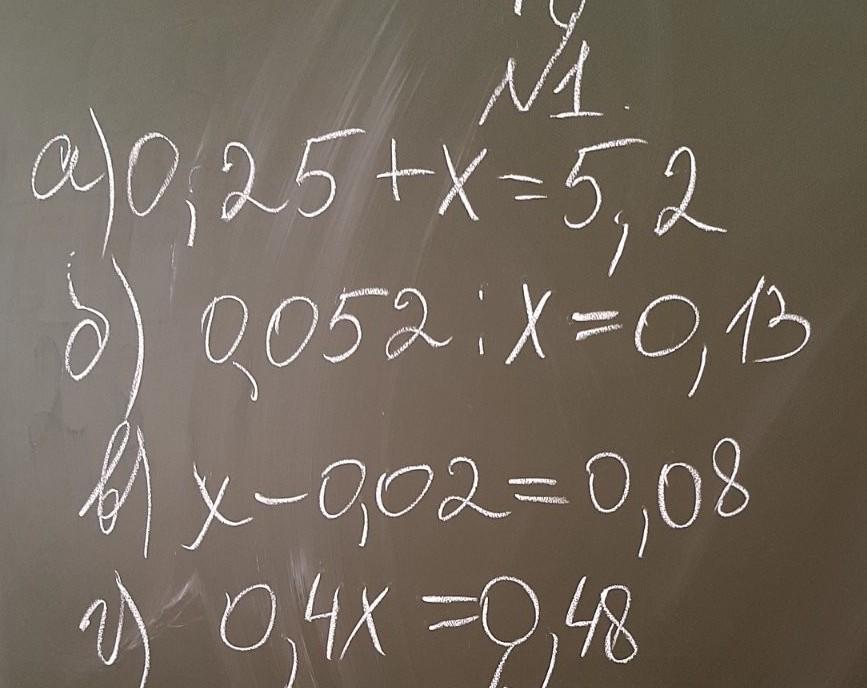 N1.
а) 0,25 + х = 5,2
б) 0,052 : х = 0,13
в) х - 0,02 = 0,08
г) 0,4х = 0,48